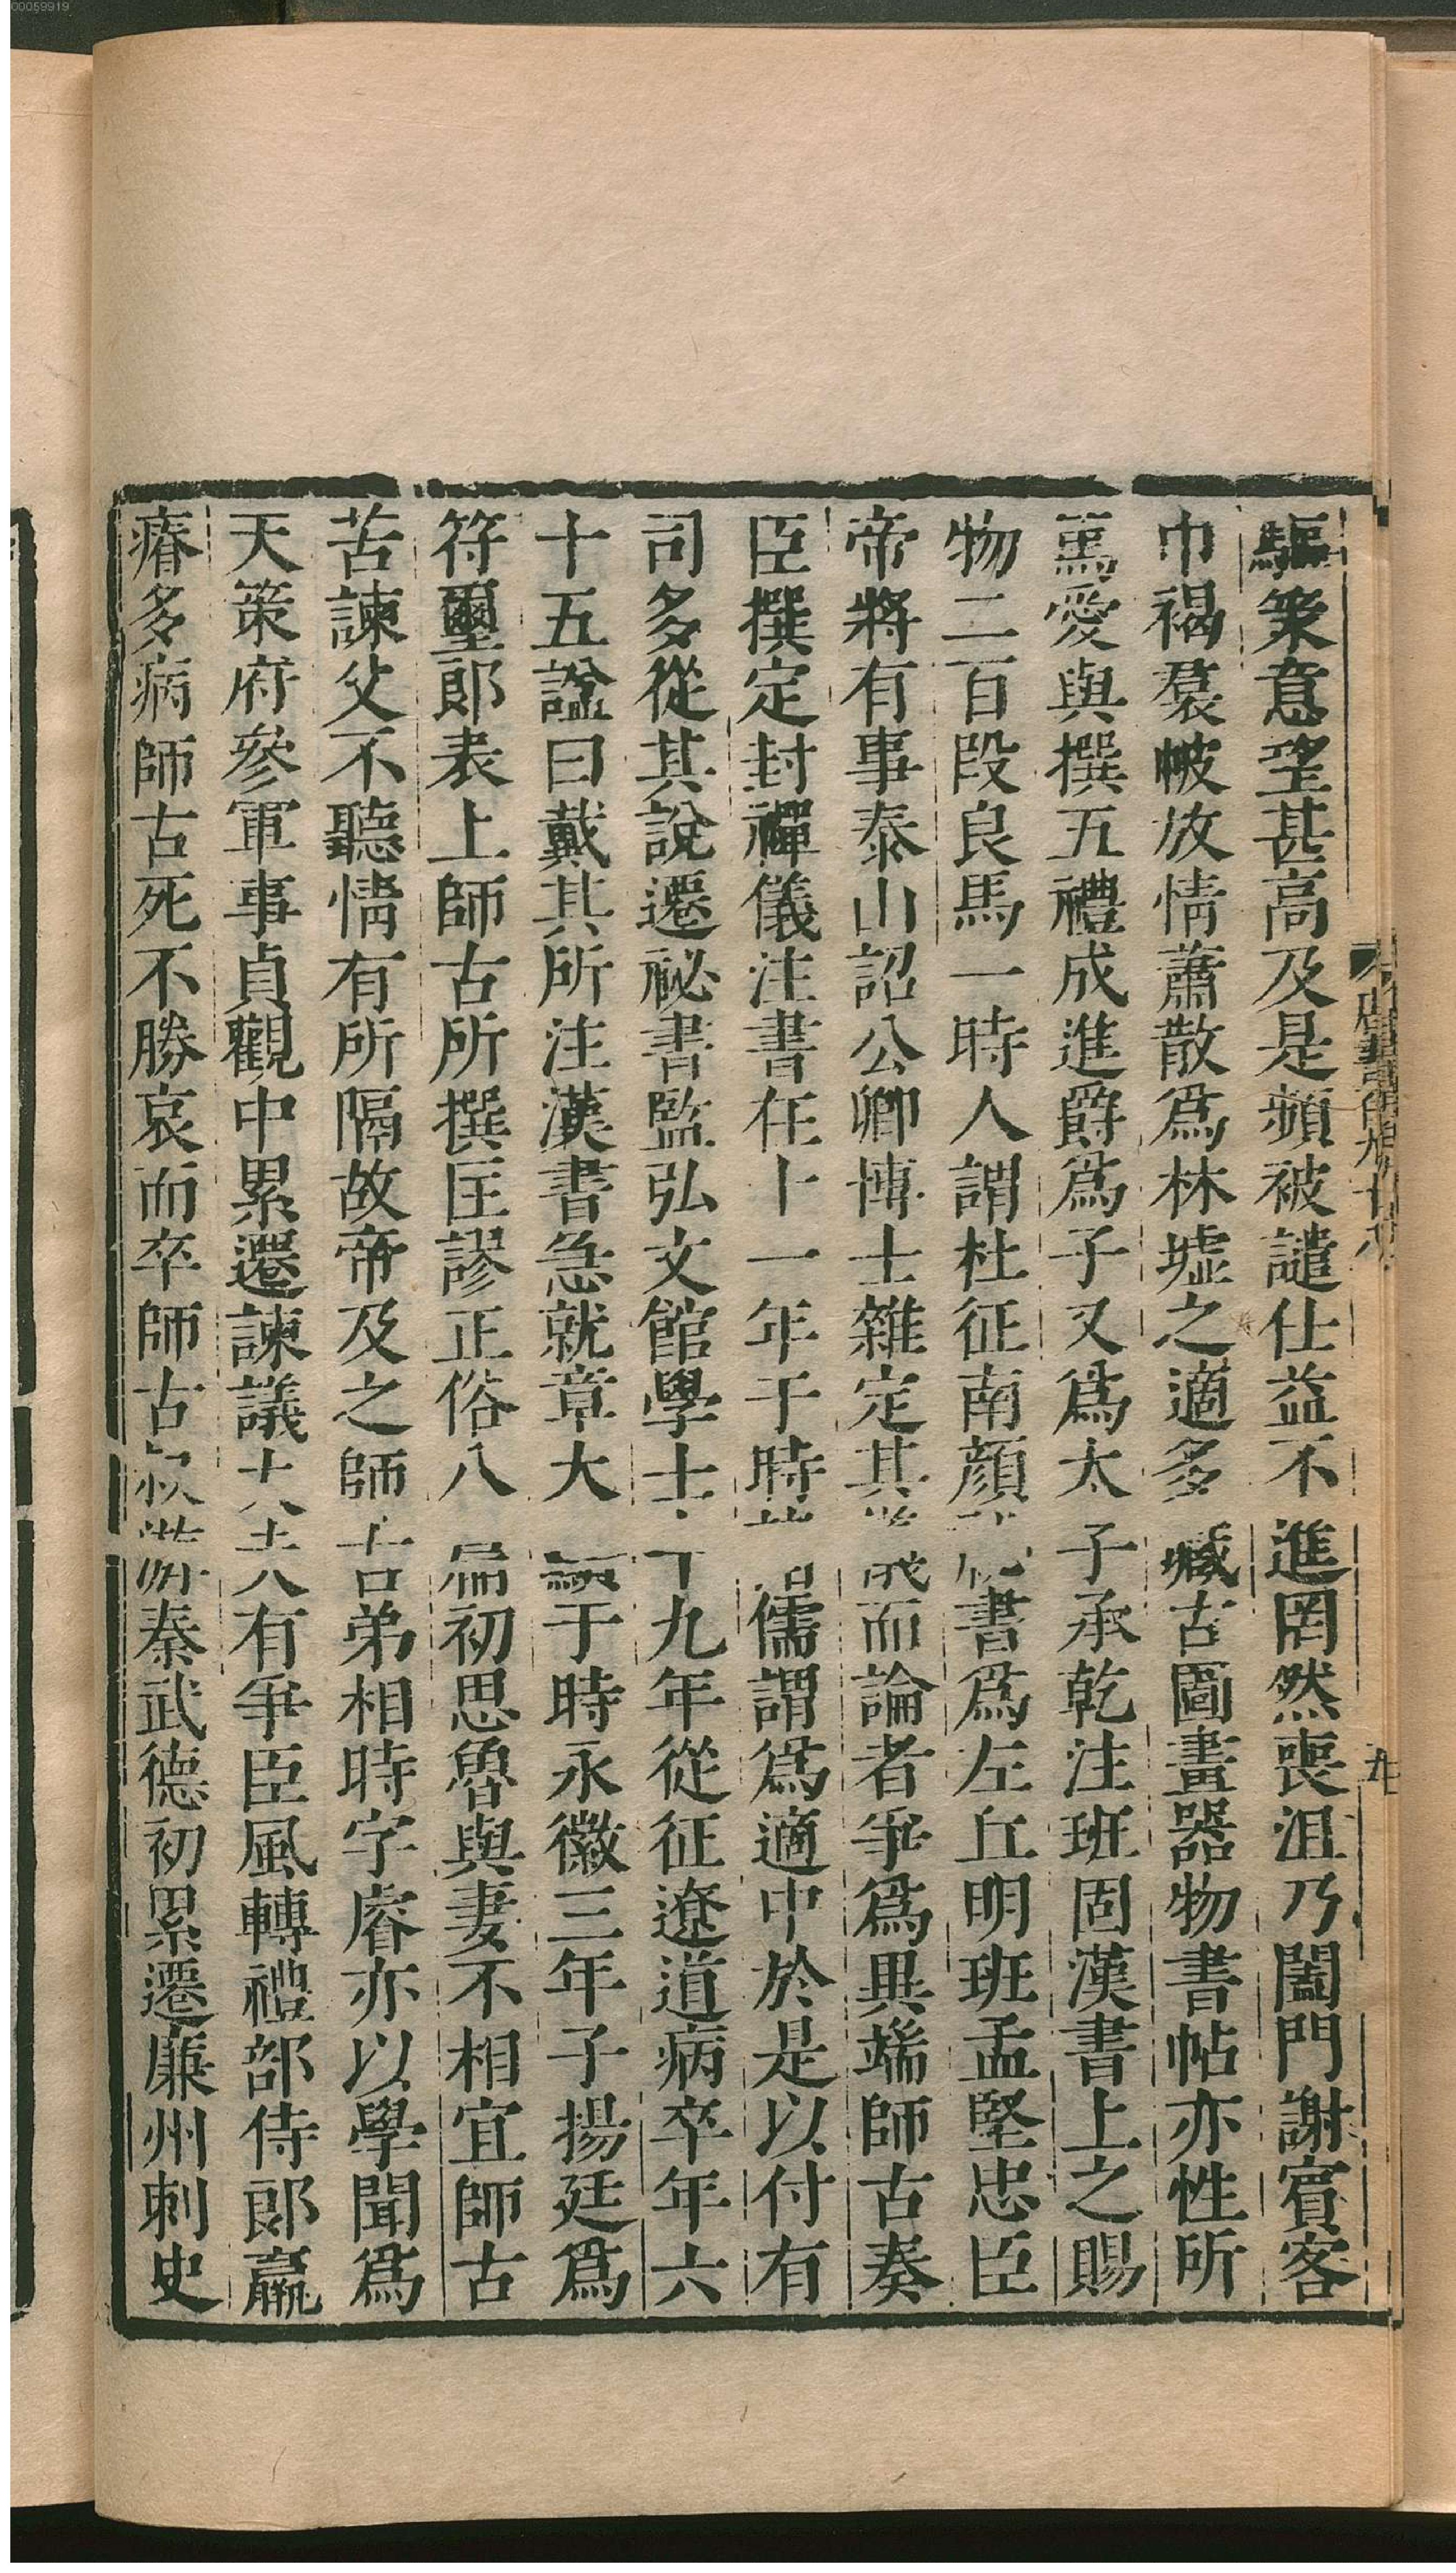 00059919
驅衆意望甚高及是頻被譴仕益不進罔然喪沮乃闔門謝賓客
巾褐裘帔放情蕭散爲林墟之適多藏古圖畫器物書帖亦性所
篤愛與撰五禮成進爵爲子又爲太子承乾注班固漢書上之賜
物二百段良馬一時人謂杜征南顔書爲左丘明班孟堅忠臣
帝將有事泰山詔公卿博士雜定其而論者爭爲異端師古奏
臣撰定封禪儀注書在十一年于時儒謂爲適中於是以付有
司多從其說遷祕書監弘文館學士十九年從征遼道病卒年六
十五諡曰戴其所注漢書急就章大顯于時永徽三年子揚廷爲
符璽郎表上師古所撰匡謬正俗八篇初思魯與妻不相宜師古
苦諫父不聽情有所隔故帝及之師古弟相時字睿亦以學聞爲
天策府參軍事貞觀中累遷諫議大夫有爭臣風轉禮部侍郎羸
瘠多病師古死不勝哀而卒師古叔游秦武德初累遷廉州刺史